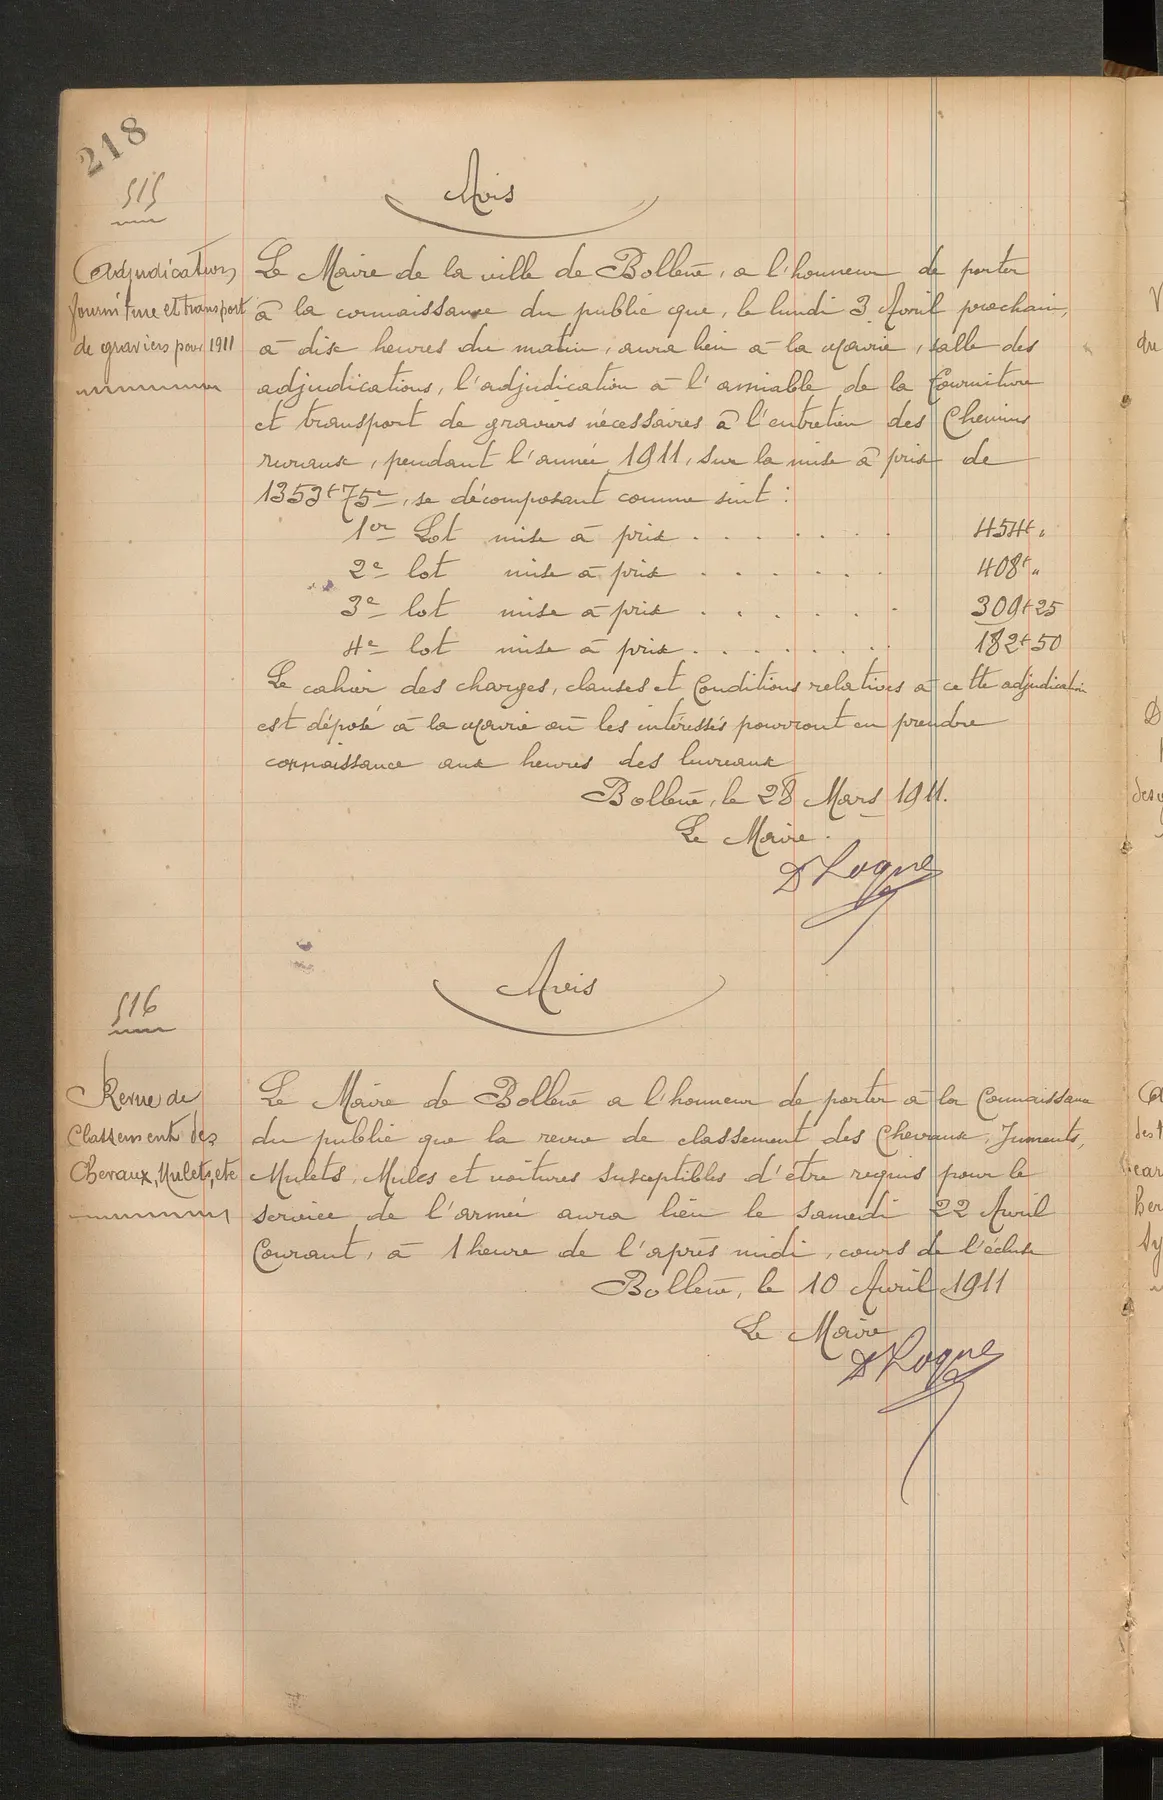 218
515
Avis
Adjudication,
fourniture et transport
de graviers pour 1911
Le Maire de la ville de Bollène, a l'honneur de porter
à la connaissance du public que, le lundi 3 Avril prochain,
à dix heures du matin, aura lieu à la Mairie, salle des
adjudications, l'adjudication à l'amiable de la fourniture
et transport de graviers nécessaires à l'entretien des Chemins
ruraux, pendant l'année 1911, sur la mise à prix de
1353f 75c, se décomposant comme suit :
1er Lot mise à prix . . . . . . . 454f "
2e lot mise à prix . . . . . . 408f "
3e lot mise à prix . . . . . . 309f 25
4e lot mise à prix . . . . . . . . 182f 50
Le cahier des charges, clauses et Conditions relatives à cette adjudication
est déposé à la Mairie où les intéressés pourront en prendre
connaissance aux heures des bureaux
Bollène, le 28 Mars 1911.
Le Maire.
Dr Logne
516
Avis
Revue de
Classement des
Chevaux, Mulets, etc
Le Maire de Bollène a l'honneur de porter à la Connaissance
du public que la revue de classement des Chevaux, Juments,
Mulets, Mules et voitures susceptibles d'être requis pour le
service de l'armée aura lieu le samedi 22 Avril
Courant, à 1 heure de l'après midi, cours de l'écluse
Bollène, le 10 Avril 1911
Le Maire
Dr Logne